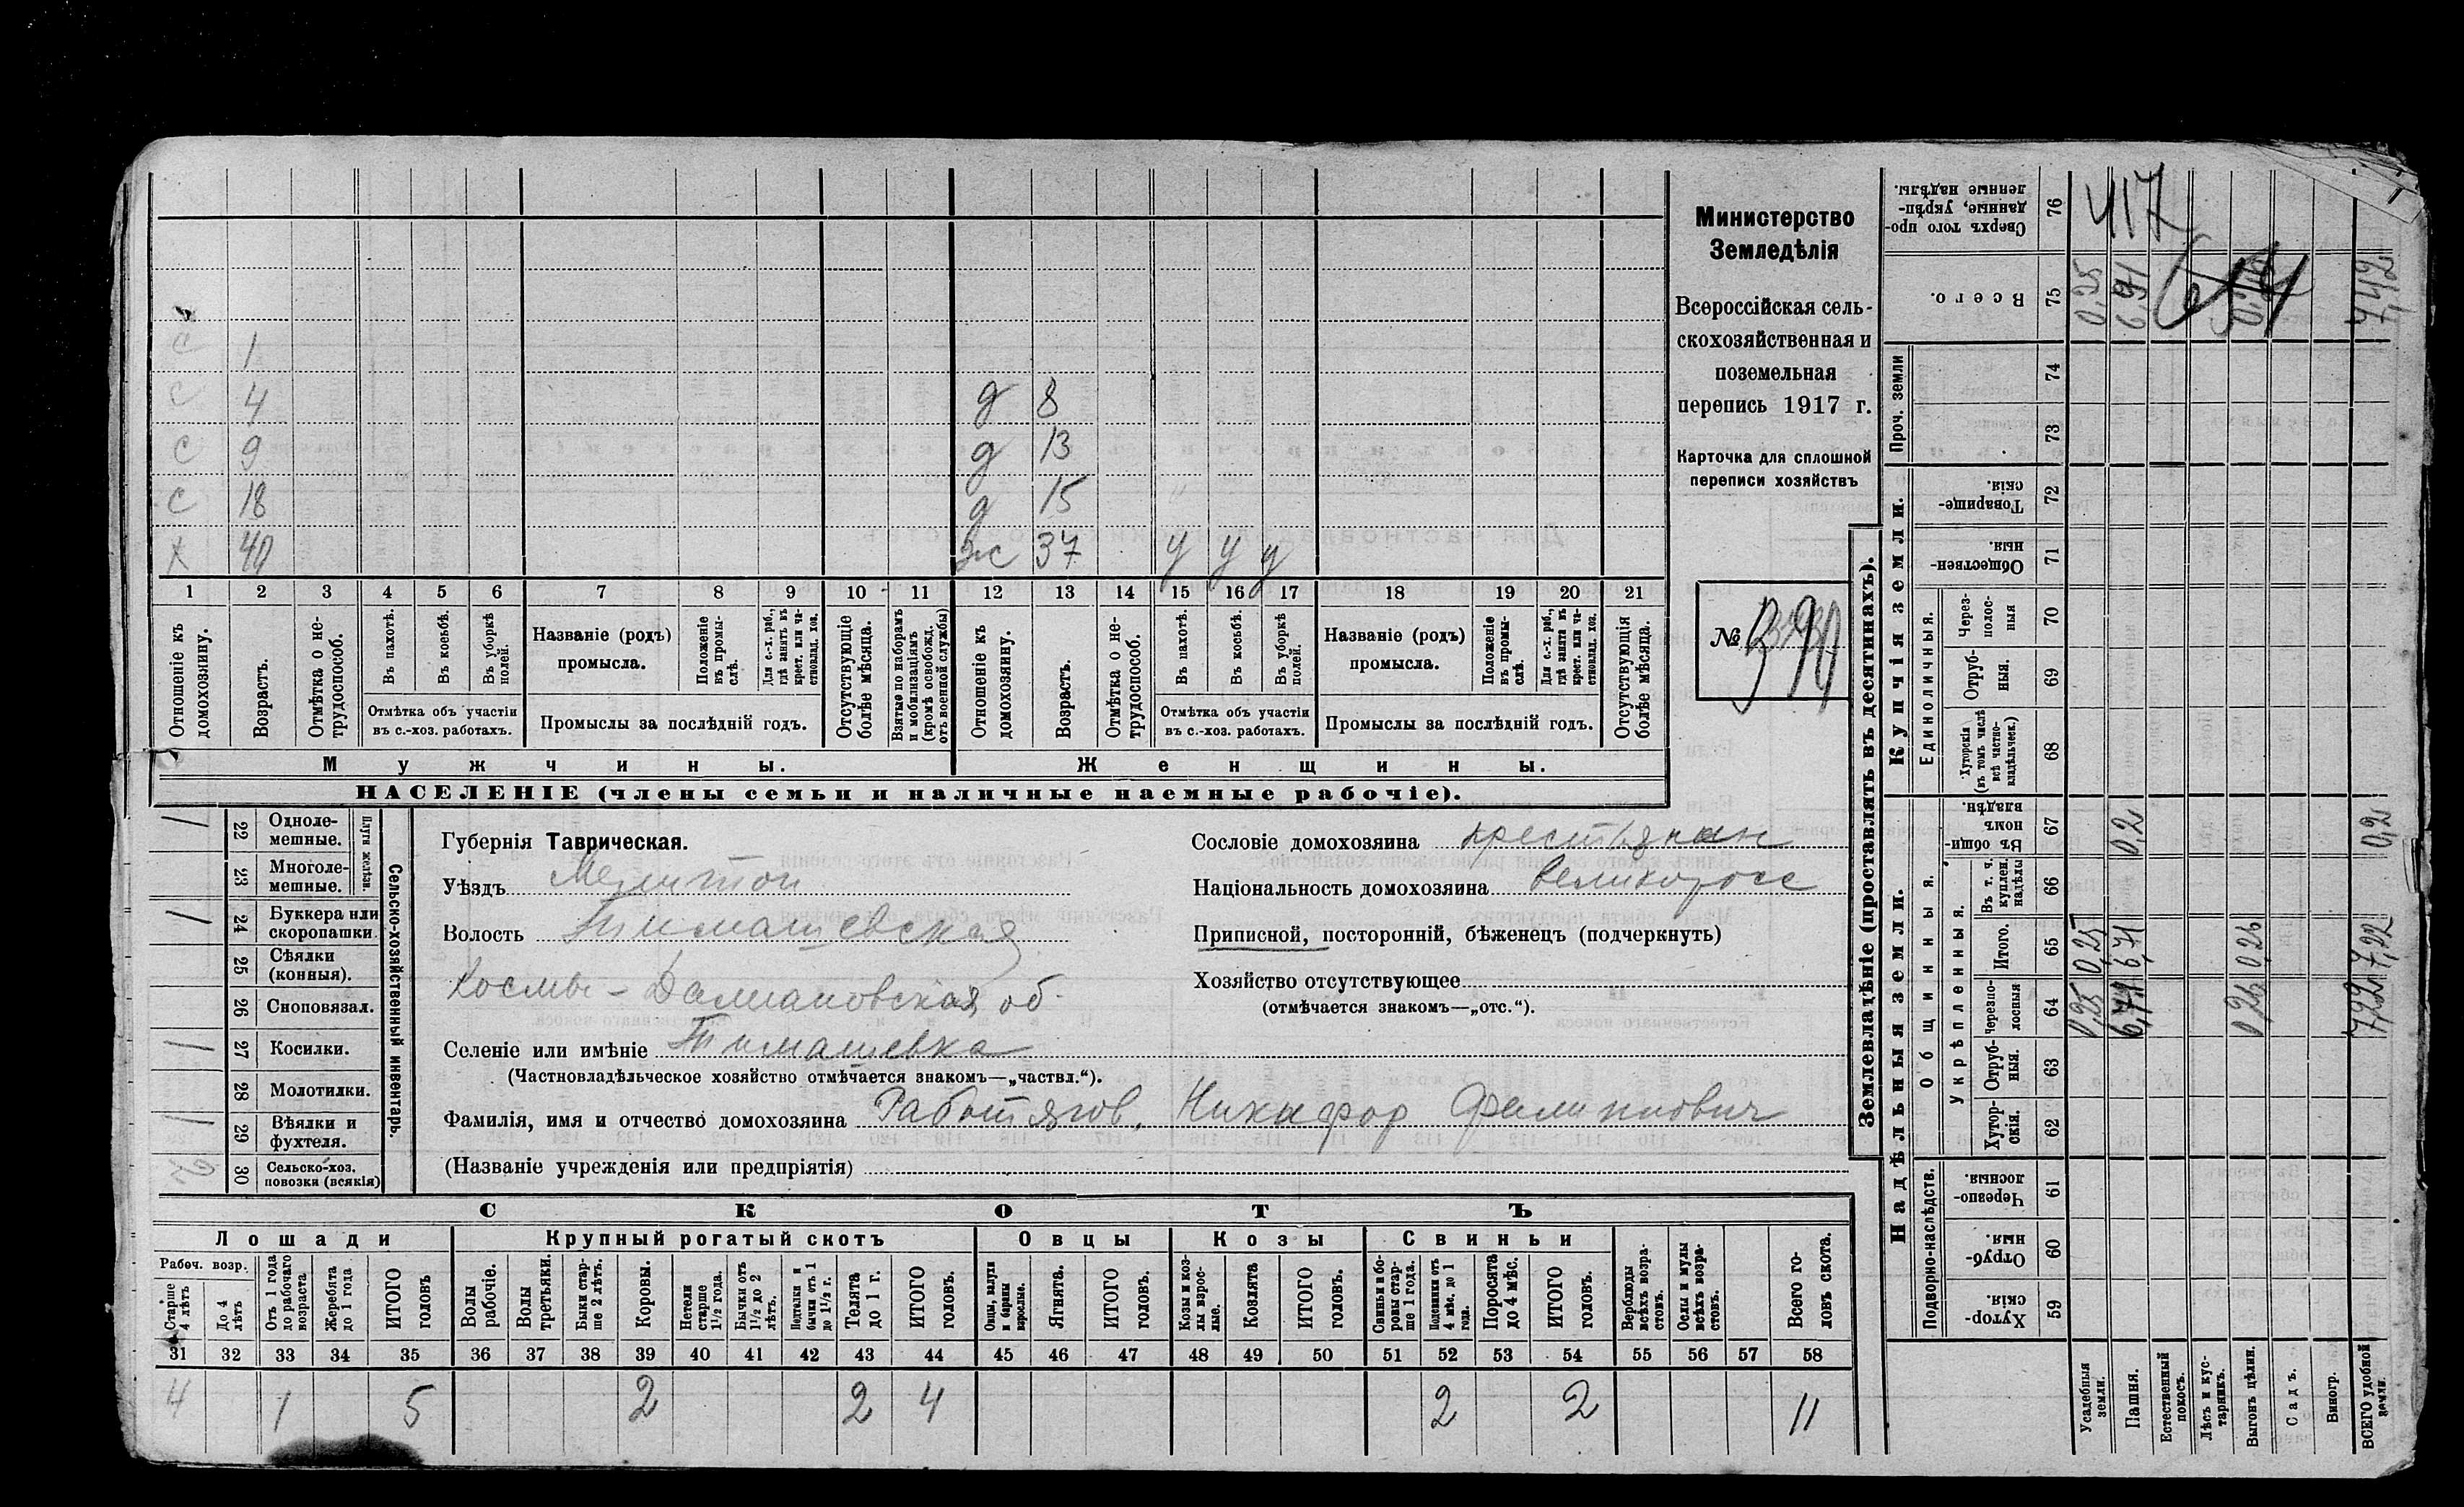 с 1
с 4 д 8
с 9 д 13
с 18 д 15
х 40 ж 37 у у у
1 2 3 4 5 6 7 8 9 10 11 12 13 14 15 16 17 18 19 20 21
Отношеніе къ домохозяину.
Возрастъ.
Отмѣтка о не-
трудоспособ.
Въ пахотѣ.
Въ косьбѣ.
Въ уборкѣ полей.
Отмѣтка объ участіи
въ с.-хоз. работахъ.
Названіе (родъ)
промысла.
Положеніе въ промы-
слѣ.
Для с.-х. раб.,
гдѣ занятъ въ
крест. или ча-
стновлад. хоз.
Промыслы за послѣдній годъ.
Отсутствующіе
болѣе мѣсяца.
Взятые по наборамъ
и мобилизаціямъ
(кромѣ освобожд.
отъ военной службы)
Отношеніе къ
домохозяину.
Возрастъ.
Отмѣтка о не-
трудоспособ.
Въ пахотѣ.
Въ косьбѣ.
Въ уборкѣ
полей.
Отмѣтка объ участіи
въ с.-хоз. работахъ.
Названіе (родъ)
промысла.
Положеніе
въ промы-
слѣ.
Для с.-х. раб.,
гдѣ занята въ
крест. или ча-
стновлад. хоз.
Промыслы за послѣдній годъ.
Отсутствующія
болѣе мѣсяца.
Мужчины.
Женщины.
НАСЕЛЕНІЕ (члены семьи и наличные наемные рабочіе).
Министерство
Земледѣлія
Всероссійская сель-
скохозяйственная и
поземельная
перепись 1917 г.
Карточка для сплошной
переписи хозяйствъ
№
Сельско-хозяйственный инвентарь.
Плуги желѣзн.
1 22 Одноле-
мешные.
23 Многоле-
мешные.
1 24 Буккера или
скоропашки
25 Сѣялки
(конныя).
26 Сноповязал.
1 27 Косилки.
28 Молотилки.
1 29 Вѣялки и
фухтеля.
2 30 Сельско-хоз.
повозки (всякія)
Губернія Таврическая.
Уѣздъ Мелитоп
Волость Тимашевская
Космо-Дамиановская об
Селеніе или имѣніе Тимашевка
(Частновладѣльческое хозяйство отмѣчается знакомъ—„частвл.“).
Фамилія, имя и отчество домохозяина Работягов, Никифор Филиппович
(Названіе учрежденія или предпріятія)
Сословіе домохозяина крестьянин
Національность домохозяина великоросс
Приписной, посторонній, бѣженецъ (подчеркнуть)
Хозяйство отсутствующее
(отмѣчается знакомъ—„отс.“).
СКОТЪ
Лошади Крупный рогатый скотъ Овцы Козы Свиньи
Рабоч. возр.
Старше
4 лѣтъ
До 4
лѣтъ
Отъ 1 года
до рабочаго
возраста
Жеребята
до 1 года
ИТОГО
головъ
Волы
рабочіе.
Волы
третьяки.
Быки стар-
ше 2 лѣтъ.
Коровы.
Нетели
старше
1½ года.
Бычки отъ
1½ до 2
лѣтъ.
Подтелки и
бычки отъ 1
до 1½ г.
Телята
до 1 г.
ИТОГО
головъ.
Овцы, валухи
и бараны
взрослые.
Ягнята.
ИТОГО
головъ.
Козы и коз-
лы взрос-
лые.
Козлята
ИТОГО
головъ.
Свиньи и бо-
ровы стар-
ше 1 года.
Подсвинки отъ
4 мѣс. до 1
года.
Поросята
до 4 мѣс.
ИТОГО
головъ.
Верблюды
всѣхъ возра-
стовъ.
Ослы и мулы
всѣхъ возра-
стовъ.
Всего го-
ловъ скота.
31 32 33 34 35 36 37 38 39 40 41 42 43 44 45 46 47 48 49 50 51 52 53 54 55 56 57 58
4 1 5 2 2 4 2 2 11
Землевладѣніе (проставлять въ десятинахъ).
Надѣльныя земли.
Купчія земли.
Проч. земли
Подворно-наслѣдств.
Общинныя.
Укрѣпленныя.
Единоличныя.
Сверхъ того про-
данные, укрѣп-
ленные надѣлы.
76
417
Всего.
75
0,25
7,42
74
73
Товарище-
скія.
72
Обществен-
ныя.
71
Через-
полос-
ныя
70
Отруб-
ныя.
69
Хуторскія
(въ томъ числѣ
всѣ частно-
владѣльческ.)
68
Въ общин-
номъ
владѣн.
67
0,2
0,2
Въ т. ч.
куплен.
надѣлы
66
Итого.
65
0,25
6,71
0,26
7,22
Черезпо-
лосныя
64
0,25
6,71
0,26
7,22
Отруб-
ныя.
63
Хутор-
скія.
62
Черезпо-
лосныя.
61
Отруб-
ныя.
60
Хутор-
скія.
59
Усадебныя
земли.
Пашня.
Естественный
покосъ.
Лѣсъ и кус-
тарникъ.
Выгонъ цѣлин.
Садъ.
Виногр.
ВСЕГО удобной
земли.